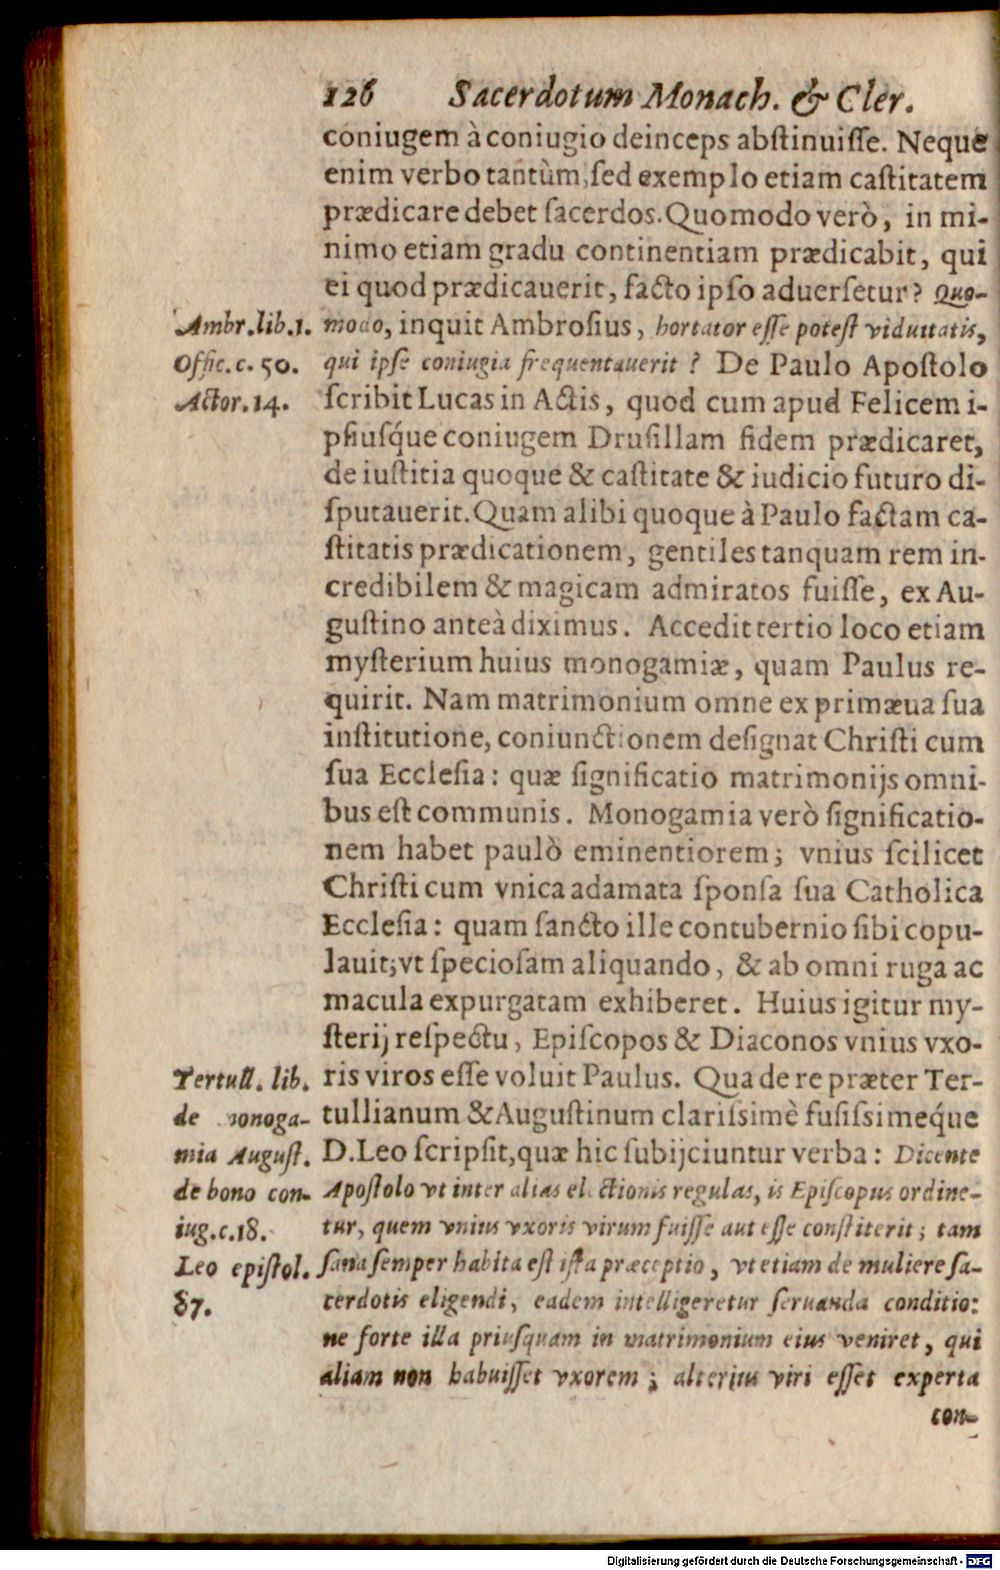 126 Sacerdotum Monach. & Cler.
coniugem à coniugio deinceps abſtinuiſſe. Neque
enim verbo tantùm, ſed exemplo etiam caſtitatem
prædicare debet ſacerdos. Quomodo verò, in mi-
nimo etiam gradu continentiam prædicabit, qui
ei quod prædicauerit, facto ipſo aduerſetur? Quo-
modo, inquit Ambroſius, hortator eſſe poteſt viduitatis,
qui ipſe coniugia frequentauerit? De Paulo Apoſtolo
ſcribit Lucas in Actis, quod cum apud Felicem i-
pſiuſq́ue coniugem Druſillam fidem prædicaret,
de iuſtitia quoque & caſtitate & iudicio futuro di-
ſputauerit. Quam alibi quoque à Paulo factam ca-
ſtitatis prædicationem, gentiles tanquam rem in-
credibilem & magicam admiratos fuiſſe, ex Au-
guſtino anteà diximus. Accedit tertio loco etiam
myſterium huius monogamiæ, quam Paulus re-
quirit. Nam matrimonium omne ex primæua ſua
inſtitutione, coniunctionem deſignat Chriſti cum
ſua Eccleſia: quæ ſignificatio matrimonijs omni-
bus eſt communis. Monogamia verò ſignificatio-
nem habet paulò eminentiorem; vnius ſcilicet
Chriſti cum vnica adamata ſponſa ſua Catholica
Eccleſia: quam ſancto ille contubernio ſibi copu-
lauit; vt ſpecioſam aliquando, & ab omni ruga ac
macula expurgatam exhiberet. Huius igitur my-
ſterij reſpectu, Epiſcopos & Diaconos vnius vxo-
ris viros eſſe voluit Paulus. Qua de re præter Ter-
tullianum & Auguſtinum clariſsimè fuſiſsimeq́ue
D. Leo ſcripſit, quæ hic ſubijciuntur verba: Dicente
Apoſtolo vt inter alias electionis regulas, is Epiſcopus ordine-
tur, quem vnius vxoris virum fuiſſe aut eſſe conſtiterit; tam
ſana ſemper habita eſt iſta præceptio, vt etiam de muliere ſa-
cerdotis eligendi, eadem intelligeretur ſeruanda conditio:
ne forte illa priuſquam in matrimonium eius veniret, qui
aliam non habuiſſet vxorem; alterius viri eſſet experta
con-
Ambr. lib. 1.
Offic. c. 50.
Actor. 14.
Tertull. lib.
de monoga-
mia Auguſt.
de bono con-
iug. c. 18.
Leo epiſtol.
87.
Digitalisierung gefördert durch die Deutsche Forschungsgemeinschaft - DFG